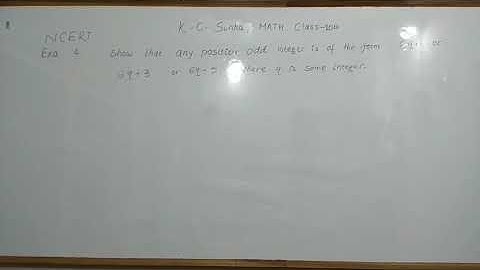 K. C. Sinha, MATH Class-10th
NCERT
Exa 4 Show that any positive odd integer is of the form 6q+1 or
6q+3 or 6q+5, where q is some integer.